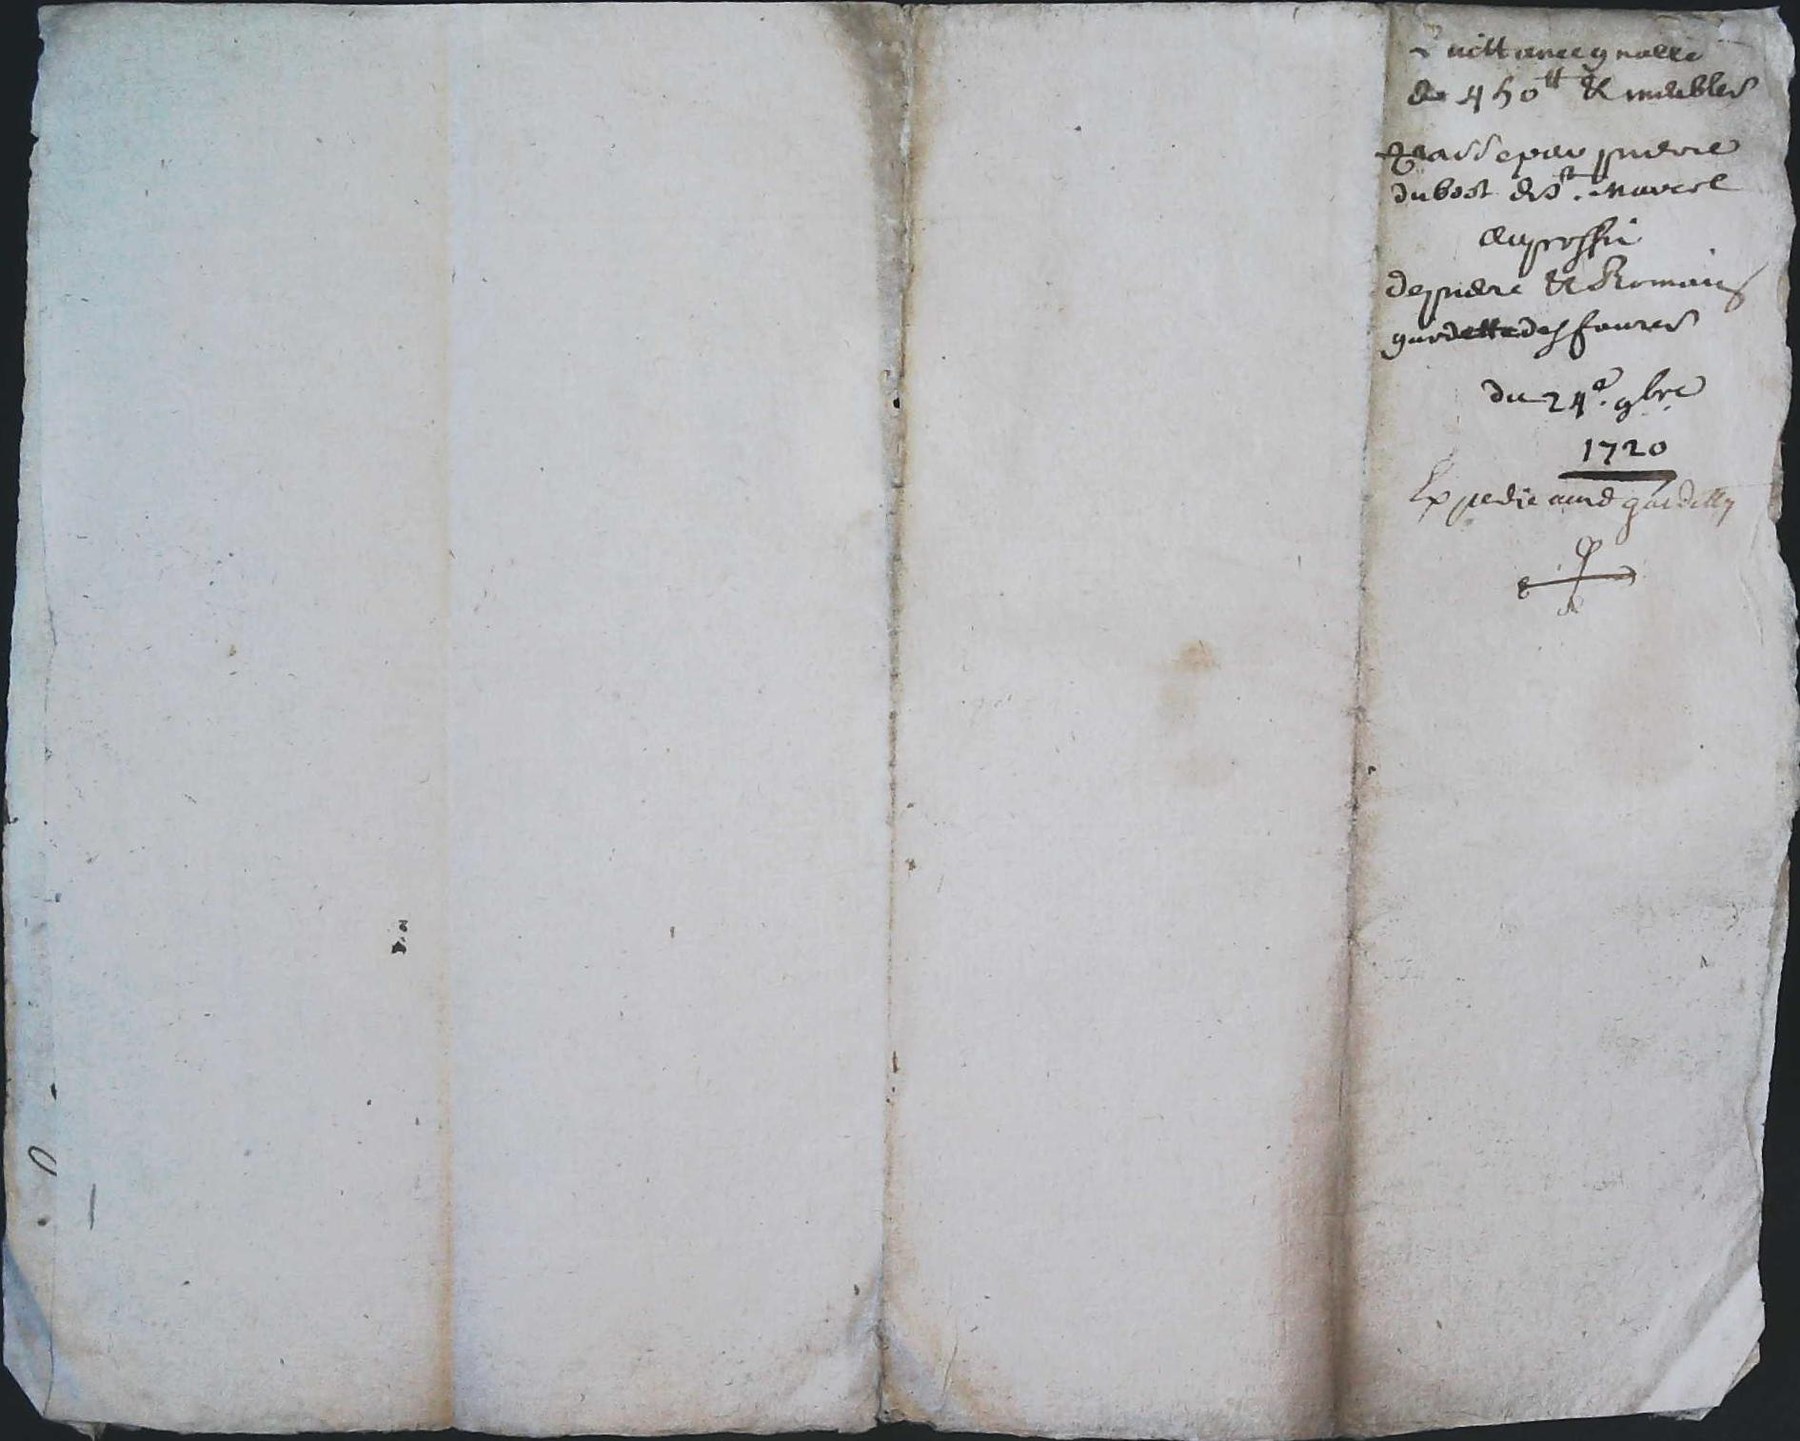 Quittance gnalle
de 450 tt & meubles
passe par pierre
dubost de st. marcel
au proffit
de pierre & Romain
gardette des faures
du 24e. 9bre
1720
Expedie aud gardette